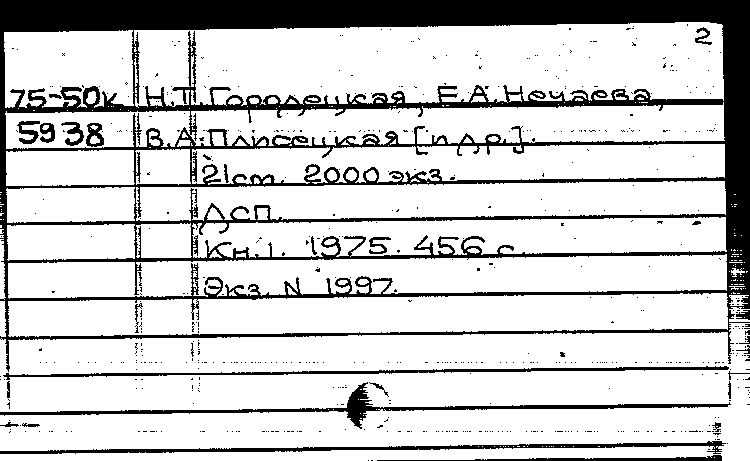 2
75-50к Н.Т. Городецкая, Е.А. Нечаева,
5938 В.А. Плисецкая [и др.].
21 cm. 2000 экз.
ДСП.
Кн. 1. 1975. 456 с.
Экз. N 1997.